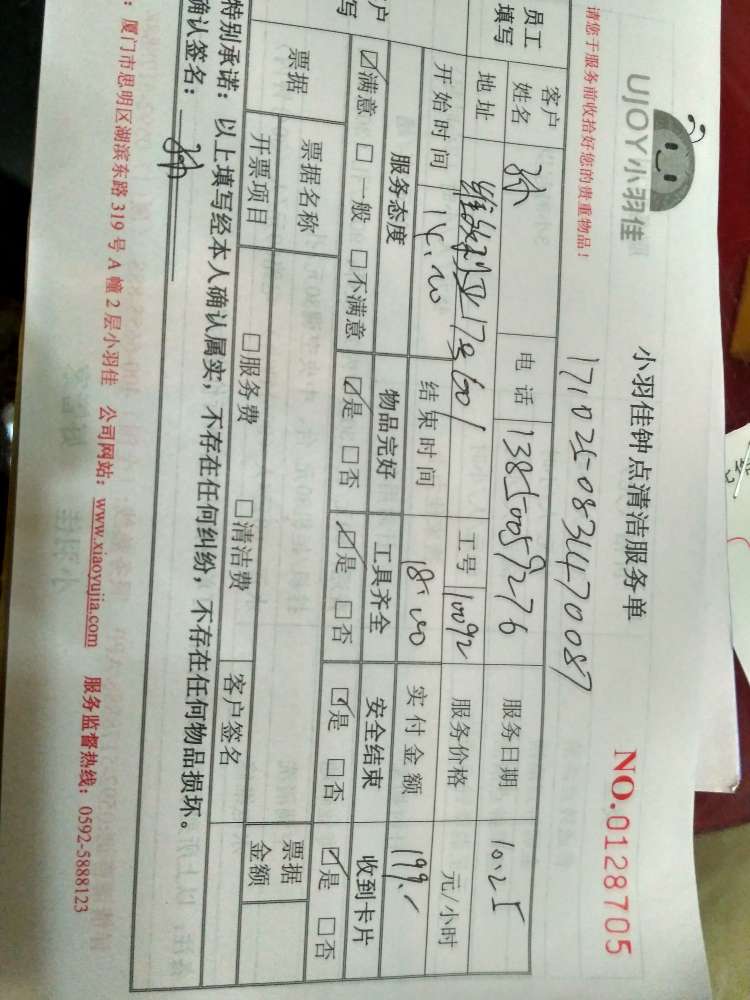 UJOY小羽佳
小羽佳钟点清洁服务单
NO.0128705
请您于服务前收拾好您的贵重物品!
1710250831470087
员工填写
客户姓名 孙 电话 13850059276 服务日期 10.25
地址 维多利亚17号601 工号 10092 服务价格 元/小时
开始时间 14:00 结束时间 18:00 实付金额 199.
户
写
服务态度 物品完好 工具齐全 安全结束 收到卡片
☑满意 □一般 □不满意 ☑是 □否 ☑是 □否 ☑是 □否 ☑是 □否
票据 票据名称 □服务费 □清洁费 票据金额
开票项目 客户签名
特别承诺:以上填写经本人确认属实,不存在任何纠纷,不存在任何物品损坏。
确认签名: 孙
:厦门市思明区湖滨东路319号A幢2层小羽佳 公司网站:www.xiaoyujia.com 服务监督热线:0592-5888123